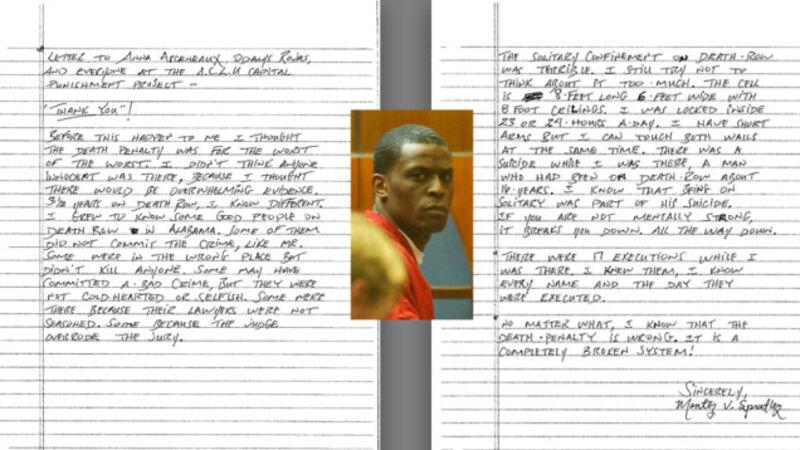 LETTER TO ANNA ARCENEAUX, DDALYS ROJAS,
AND EVERYONE AT THE A.C.L.U CAPITAL
PUNISHMENT PROJECT —
"THANK YOU"!
BEFORE THIS HAPPEN TO ME I THOUGHT
THE DEATH PENALTY WAS FOR THE WORST
OF THE WORST. I DIDN'T THINK ANYONE
INNOCENT WAS THERE, BECAUSE I THOUGHT
THERE WOULD BE OVERWHELMING EVIDENCE.
3½ YEARS ON DEATH ROW, I KNOW DIFFERENT.
I GREW TO KNOW SOME GOOD PEOPLE ON
DEATH ROW IN ALABAMA. SOME OF THEM
DID NOT COMMIT THE CRIME, LIKE ME.
SOME WERE IN THE WRONG PLACE BUT
DIDN'T KILL ANYONE. SOME MAY HAVE
COMMITTED A BAD CRIME, BUT THEY WERE
NOT COLD-HEARTED OR SELFISH. SOME WERE
THERE BECAUSE THEIR LAWYERS WERE NOT
SEASONED. SOME BECAUSE THE JUDGE
OVERRODE THE JURY.
THE SOLITARY CONFINEMENT ON DEATH-ROW
WAS TERRIBLE. I STILL TRY NOT TO
THINK ABOUT IT TOO MUCH. THE CELL
IS 8-FEET LONG 6-FEET WIDE WITH
8 FOOT CEILINGS. I WAS LOCKED INSIDE
23 OR 24-HOURS A-DAY. I HAVE SHORT
ARMS BUT I CAN TOUCH BOTH WALLS
AT THE SAME TIME. THERE WAS A
SUICIDE WHILE I WAS THERE, A MAN
WHO HAD BEEN ON DEATH-ROW ABOUT
YEARS. I KNOW THAT BEING ON
SOLITARY WAS PART OF HIS SUICIDE.
IF YOU ARE NOT MENTALLY STRONG,
IT BREAKS YOU DOWN. ALL THE WAY DOWN.
THERE WERE 17 EXECUTIONS WHILE I
WAS THERE. I KNEW THEM, I KNOW
EVERY NAME AND THE DAY THEY
WERE EXECUTED.
NO MATTER WHAT, I KNOW THAT THE
DEATH-PENALTY IS WRONG. IT IS A
COMPLETELY BROKEN SYSTEM!
SINCERELY,
Montez V. Spradley